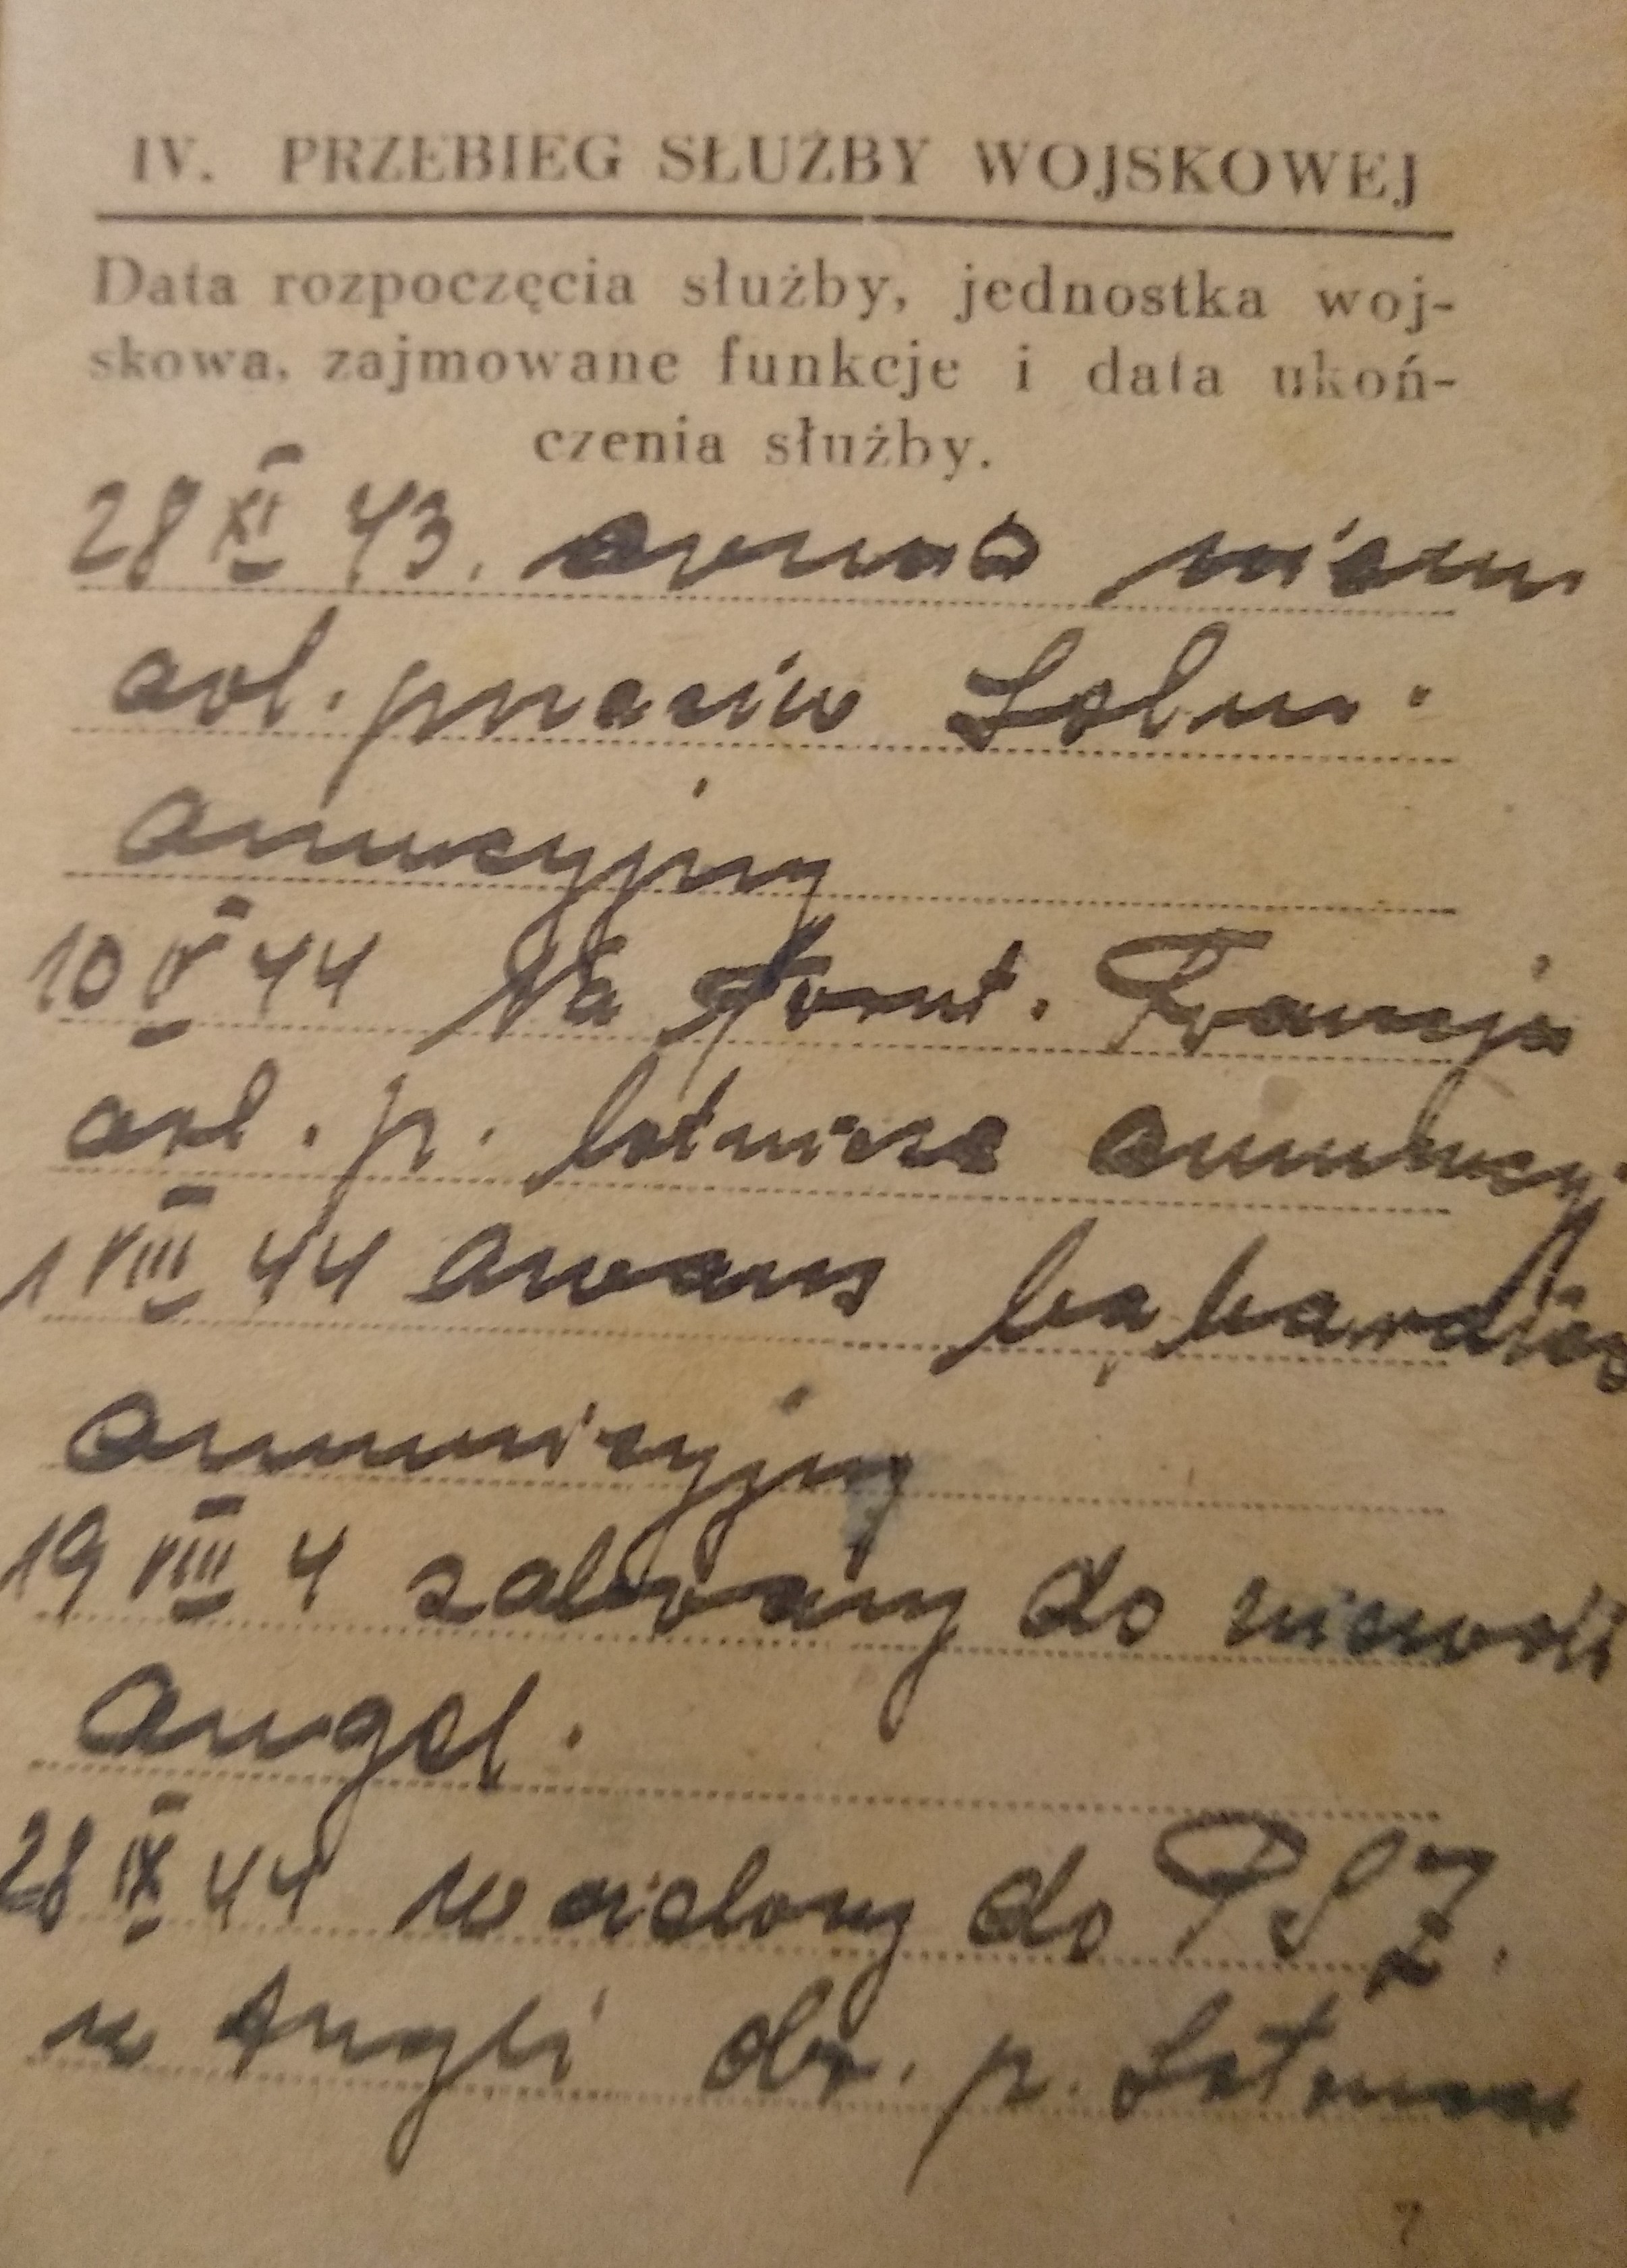 IV. PRZEBIEG SŁUŻBY WOJSKOWEJ
Data rozpoczęcia służby, jednostka woj-
skowa, zajmowane funkcje i data ukoń-
czenia służby.
28 XI 43.
art.
10 IV 44 Na front. Francja
art. p. lotnicza
1 VIII 44 awans
amunicyjny
19 VIII 4 zabrany do niewoli
angel.
28 IX 44 wcielony do PSZ.
w Angli p.
7